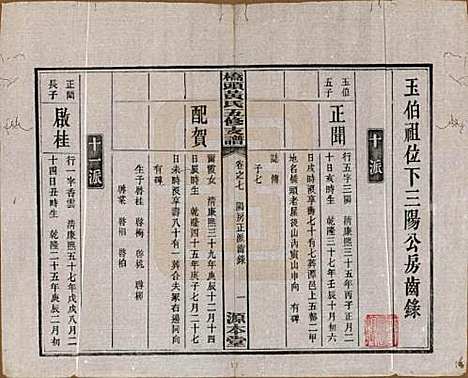 玉伯祖位下三陽公房齒錄
十一派
玉伯
五子
正聞
行五字三陽 清康熙三十五年丙子正月二
十日亥時生 乾隆三十七年壬辰十月初六
日時歿享壽七十有七葬源邑上五都二甲
地名橋頭老屋後山內寅山申向 有碑
誌傳
子七
配賀
爾霞女 清康熙三十九年庚辰十二月十四
日辰時生 乾隆四十五年庚子七月二十七
日未時歿享壽八十有一葬合夫冢右邊同向
有碑
生子啓桂 啓梅 啓桃 啓柳
啓棠 啓榴 啓柏
橋頭黃氏五修支譜
卷之七 陽房正派齒錄
一
源本堂
十二派
正聞
長子
啟桂
行一字香雲 清康熙五十七年戊戌八月二
十四日丑時生 乾隆二十五年庚辰二月初